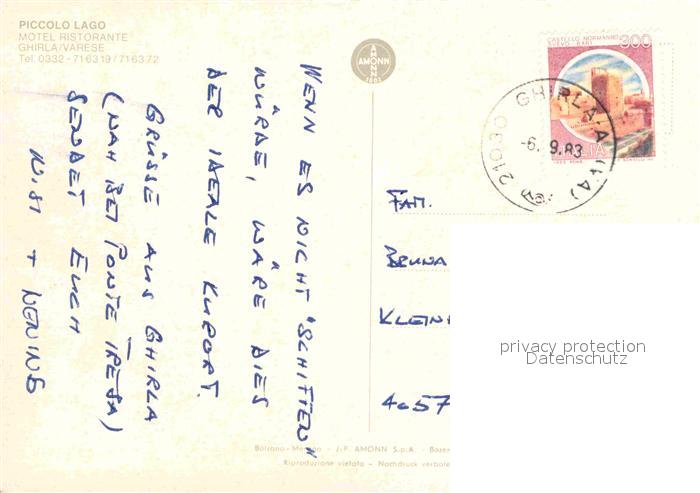 PICCOLO LAGO
MOTEL RISTORANTE
GHIRLA/VARESE
Tel. 0332 - 716319/716372
AMONN
AMONN
1802
CASTELLO NORMANNO
SVEVO BARI
300
21030 GHIRLA-A(VA)
-6. 9.83
WENN ES NICHT "SCHITTEN"
WÜRDE, WÄRE DIES
DER IDEALE KURORT.
GRÜSSE AUS GHIRLA
(NAH BEI PONTE TRESA)
SENDET EUCH
+ NENING
FAM.
BRUNA
KLEINH
4057
privacy protection
Datenschutz
J.P. AMONN S.p.A. - Bozen
Riproduzione vietata - Nachdruck verboten